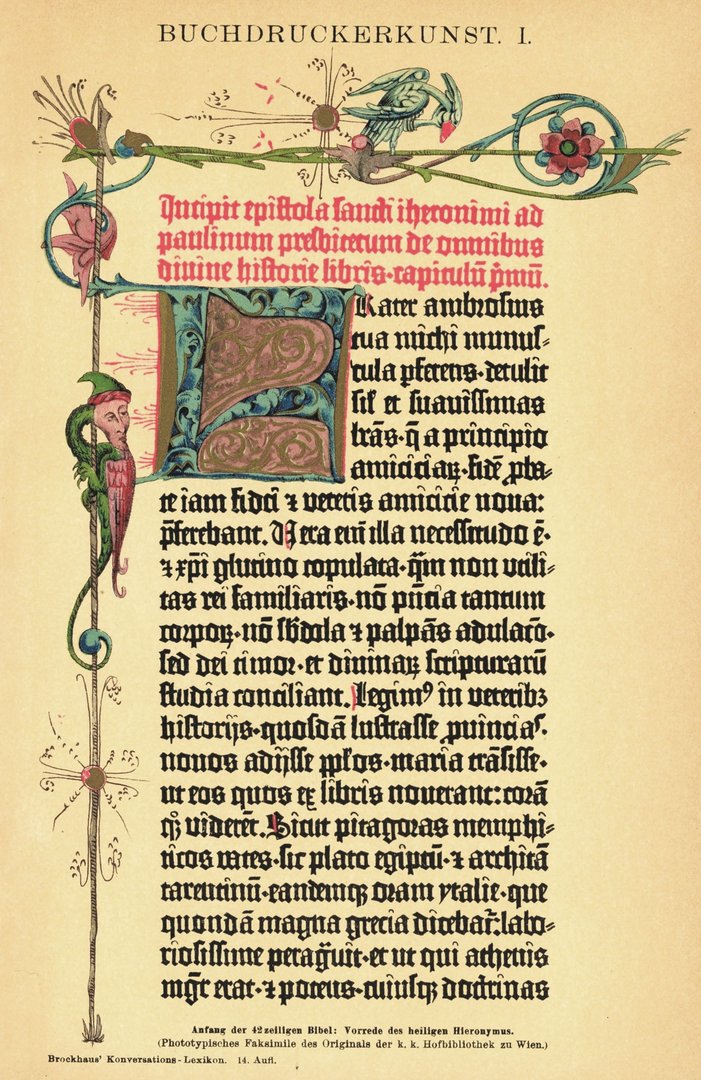 BUCHDRUCKERKUNST. I.
Incipit epistola sancti iheronimi ad
paulinum presbiterum de omnibus
divine historie libris·capitulū p̄mū.
Frater ambrosius
tua michi munus-
cula p̱ferens·detulit
sil̄ et suavissimas
lr̄as·q̄ a principio
amiciciaꝝ·fidē ꝓba-
te iam fidei ⁊ veteris amicicie nova:
p̄ferebant. Vera eni̅ illa necessitudo ē·
⁊ xp̄i glutino copulata·qm̄ non utili-
tas rei familiaris·nō pn̄cia tantum
corpoꝝ·nō sb̄dola ⁊ palpās adulacō·
sed dei timor·et divinaꝝ scripturarū
studia conciliant. Legimꝰ in veteribꝫ
historijs·quosdā lustrasse ꝓvincias·
novos adijsse pp̄los·maria trāsisse·
ut eos quos ex libris noverant: corā
qͦꝫ viderēt. Sicut pitagoras memphi-
ticos vates·sic plato egiptū·⁊ architā
tarentinū·eandemqꝫ oram ytalie·que
quondā magna grecia dicebat̄: labo-
riosissime peragᷓvit·et ut qui athenis
mgr̄ erat·⁊ potens·cuiusqꝫ doctrinas
Anfang der 42zeiligen Bibel: Vorrede des heiligen Hieronymus.
(Phototypisches Faksimile des Originals der k. k. Hofbibliothek zu Wien.)
Brockhaus' Konversations-Lexikon. 14. Aufl.